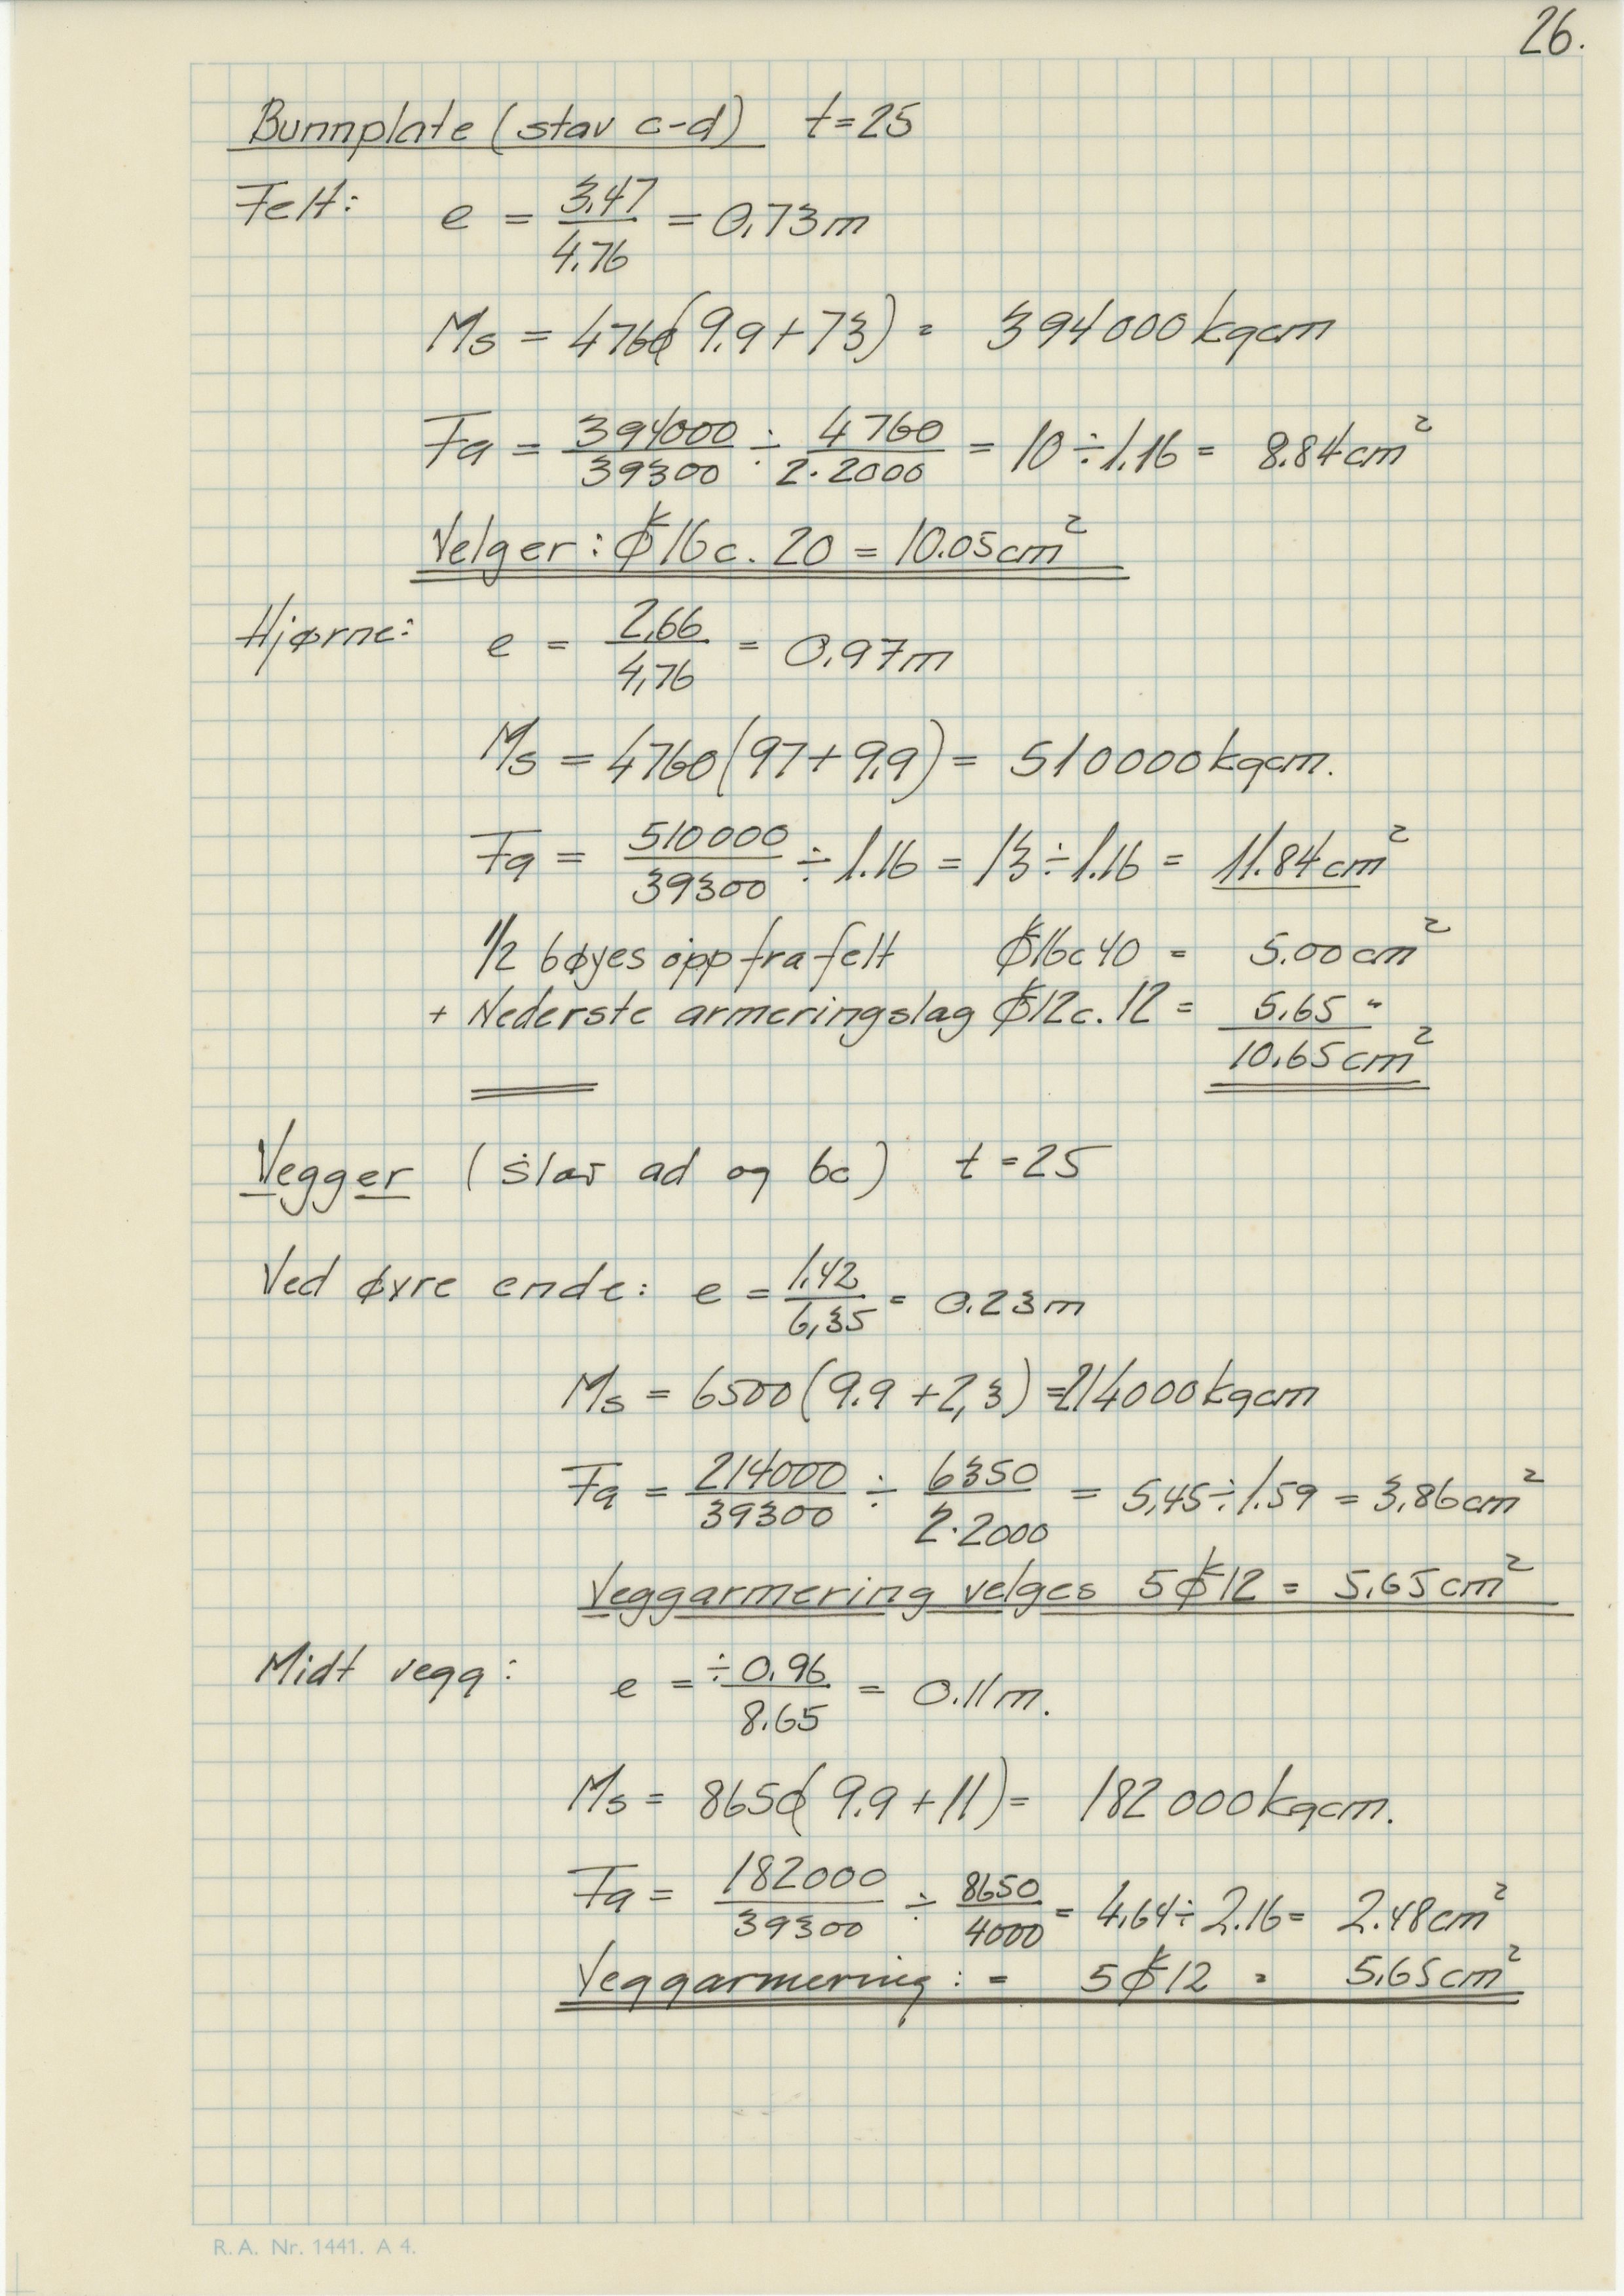 26.
Bunnplate (stav c-d) t=25
Felt: e = 3.47/4.76 = 0,73m
Ms = 4760(9.9+73) = 394000kgcm
Fa = 394000/39300 ÷ 4760/2·2000 = 10÷1.16 = 8.84cm²
Velger: ϕk16c.20 = 10.05cm²
Hjørne: e = 2,66/4,76 = 0.97m
Ms = 4760(97+9,9) = 510000kgcm.
Fa = 510000/39300 ÷ 1.16 = 13÷1.16 = 11.84cm²
1/2 bøyes opp fra felt ϕk16c40 = 5.00cm²
+ Nederste armeringslag ϕk12c.12 = 5.65 "
10.65cm²
Vegger (stav ad og bc) t=25
Ved øvre ende: e = 1.42/6,35 = 0.23m
Ms = 6500(9.9+2,3) = 214000kgcm
Fa = 214000/39300 ÷ 6350/2·2000 = 5,45÷1.59 = 3,86cm²
Veggarmering velges 5ϕk12 = 5.65cm²
Midt vegg: e = ÷0.96/8.65 = 0.11m.
Ms = 8650(9.9+11) = 182000kgcm.
Fa = 182000/39300 ÷ 8650/4000 = 4,64÷2.16 = 2.48cm²
Veggarmering: = 5ϕk12 = 5,65cm²
R.A. Nr. 1441. A 4.